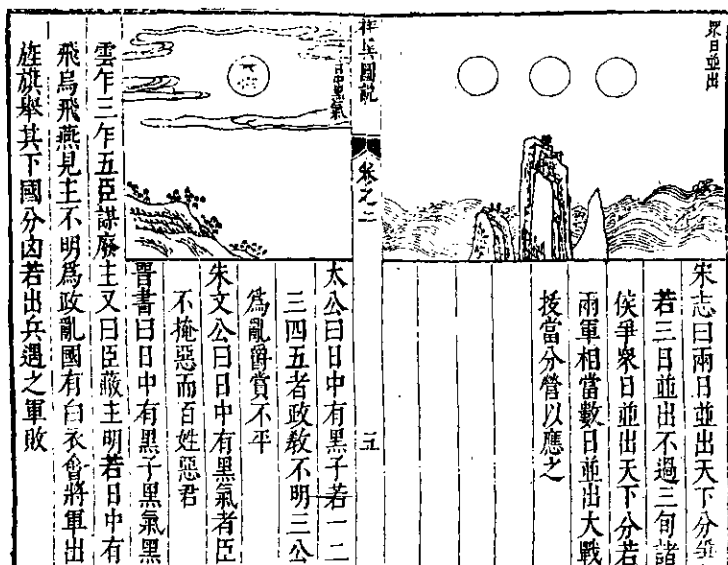 衆日並出
宋志曰兩日並出天下分爭
若三日並出不過三旬諸
侯爭衆日並出天下分若
兩軍相當數日並出大戰
投當分營以應之
兵圖説
卷之二
五
日中黑氣
太公曰日中有黑子若一二
三四五者政教不明三公
爲亂爵賞不平
朱文公曰日中有黑氣者臣
不掩惡而百姓惡君
晋書曰日中有黑子黑氣黑
雲乍三乍五臣謀廢主又曰臣蔽主明若日中有
飛烏飛燕見主不明爲政亂國有白衣會將軍出
旌旗舉其下國分凶若出兵遇之軍敗